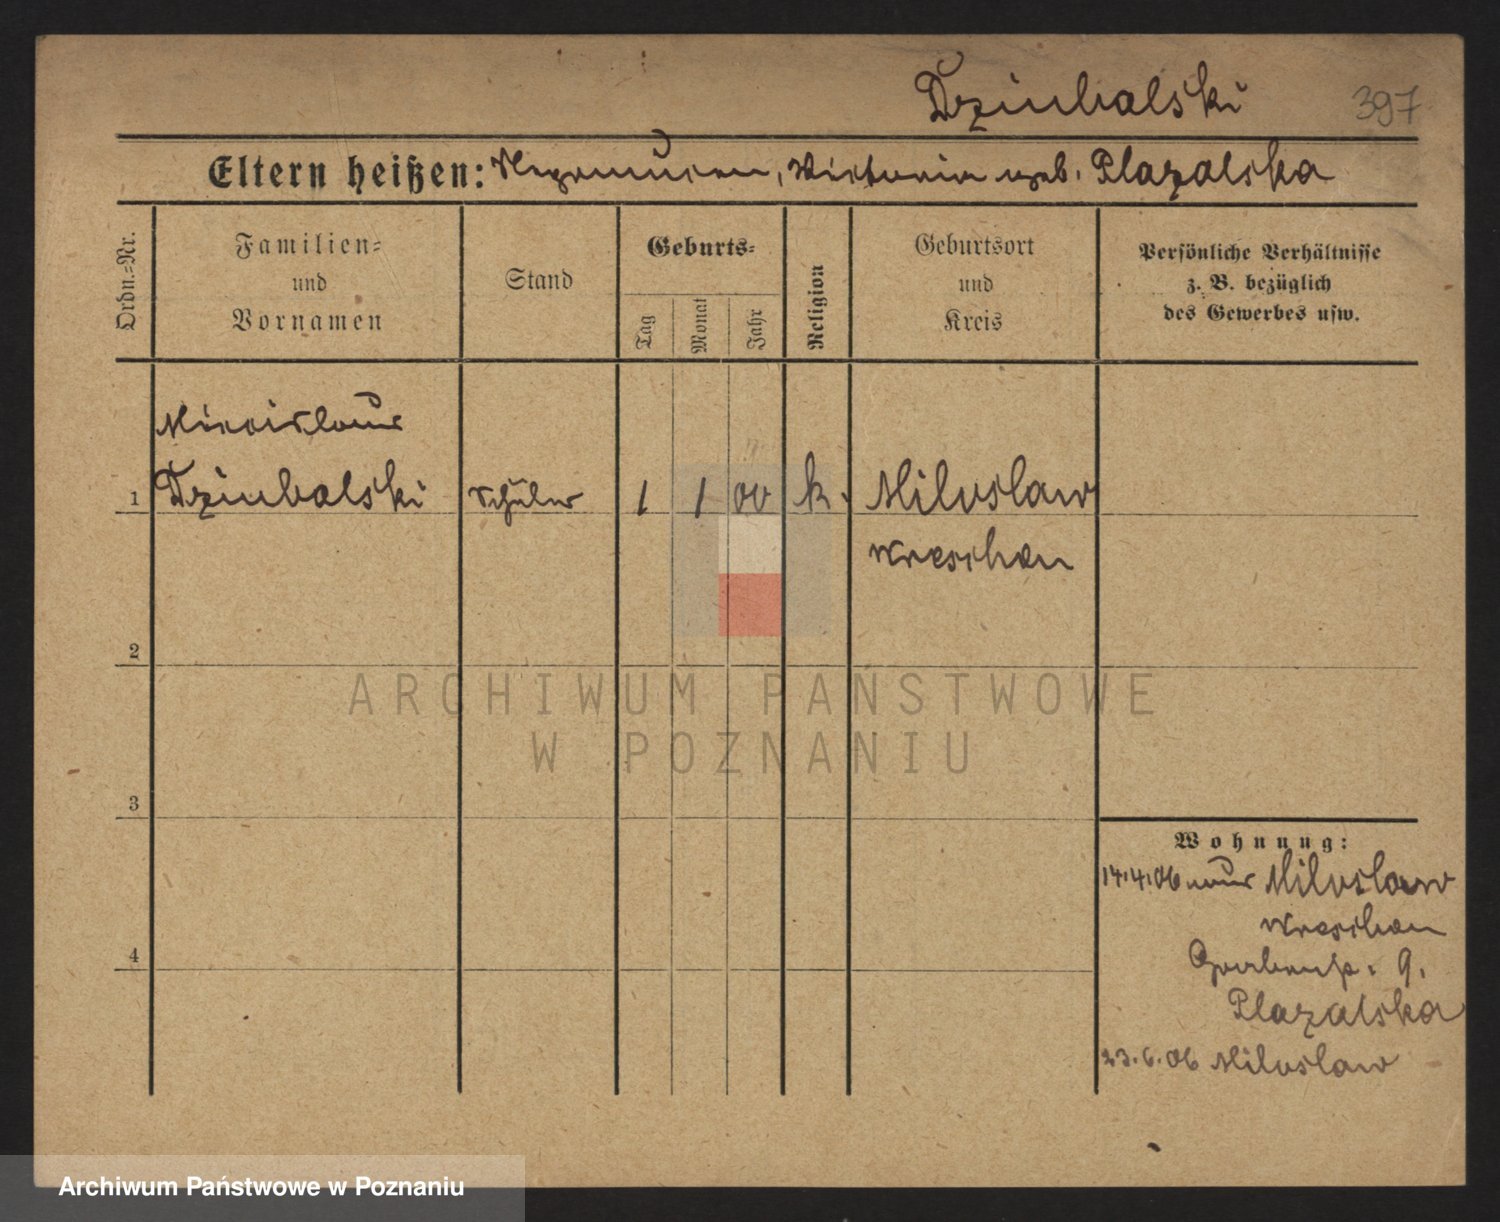 Dziubalski 397
Eltern heißen: Nepomucen, Victoria geb. Plazalska
Ordn.-Nr.
Familien-
und
Vornamen
Stand
Geburts-
Tag
Monat
Jahr
Religion
Geburtsort
und
Kreis
Persönliche Verhältnisse
z. B. bezüglich
des Gewerbes usw.
Miecislaus
1 Dziubalski Schüler 1 1 00 k. Miloslaw
Wreschen
2
ARCHIWUM PAŃSTWOWE
W POZNANIU
3
Wohnung:
14.4.06 aus Miloslaw
Wreschen
9.
Plazalska
23.6.06 Miloslaw
4
Archiwum Państwowe w Poznaniu